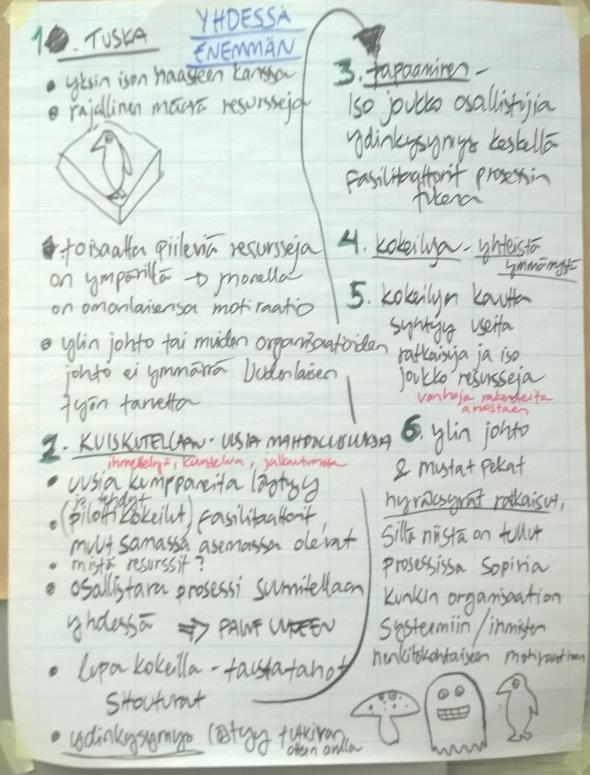 YHDESSÄ
ENEMMÄN
1. TUSKA
• yksin ison haasteen kanssa
• rajallinen määrä resursseja
• toisaalta piileviä resursseja
on ympärillä → monella
on omanlaisensa motivaatio
• ylin johto tai muiden organisaatioiden
johto ei ymmärrä uudenlaisen
työn tarvetta
2. KUISKUTELLAAN - UUSIA MAHDOLLISUUKSIA
ihmettelyä, kuuntelua, jalkautumista
• uusia kumppaneita löytyy
ja tehdyt
• (pilottikokeilut) fasilitaattorit,
muut samassa asemassa olevat
• mistä resurssit?
• osallistava prosessi suunnitellaan
yhdessä ⇒
• lupa kokeilla - taustatahot
sitoutuvat
• ydinkysymys löytyy tutkivan
otteen avulla
3. tapaaminen -
iso joukko osallistujia
ydinkysymys keskellä
fasilitaattorit prosessin
tukena
4. kokeiluja - yhteistä
ymmärrystä
5. kokeilujen kautta
syntyy useita
ratkaisuja ja iso
joukko resursseja
vanhoja rakenteita
6. ylin johto
& mustat pekat
hyväksyvät ratkaisut,
sillä niistä on tullut
prosessissa sopivia
kunkin organisaation
systeemiin / ihmisten
henkilökohtaiseen motivaatioon